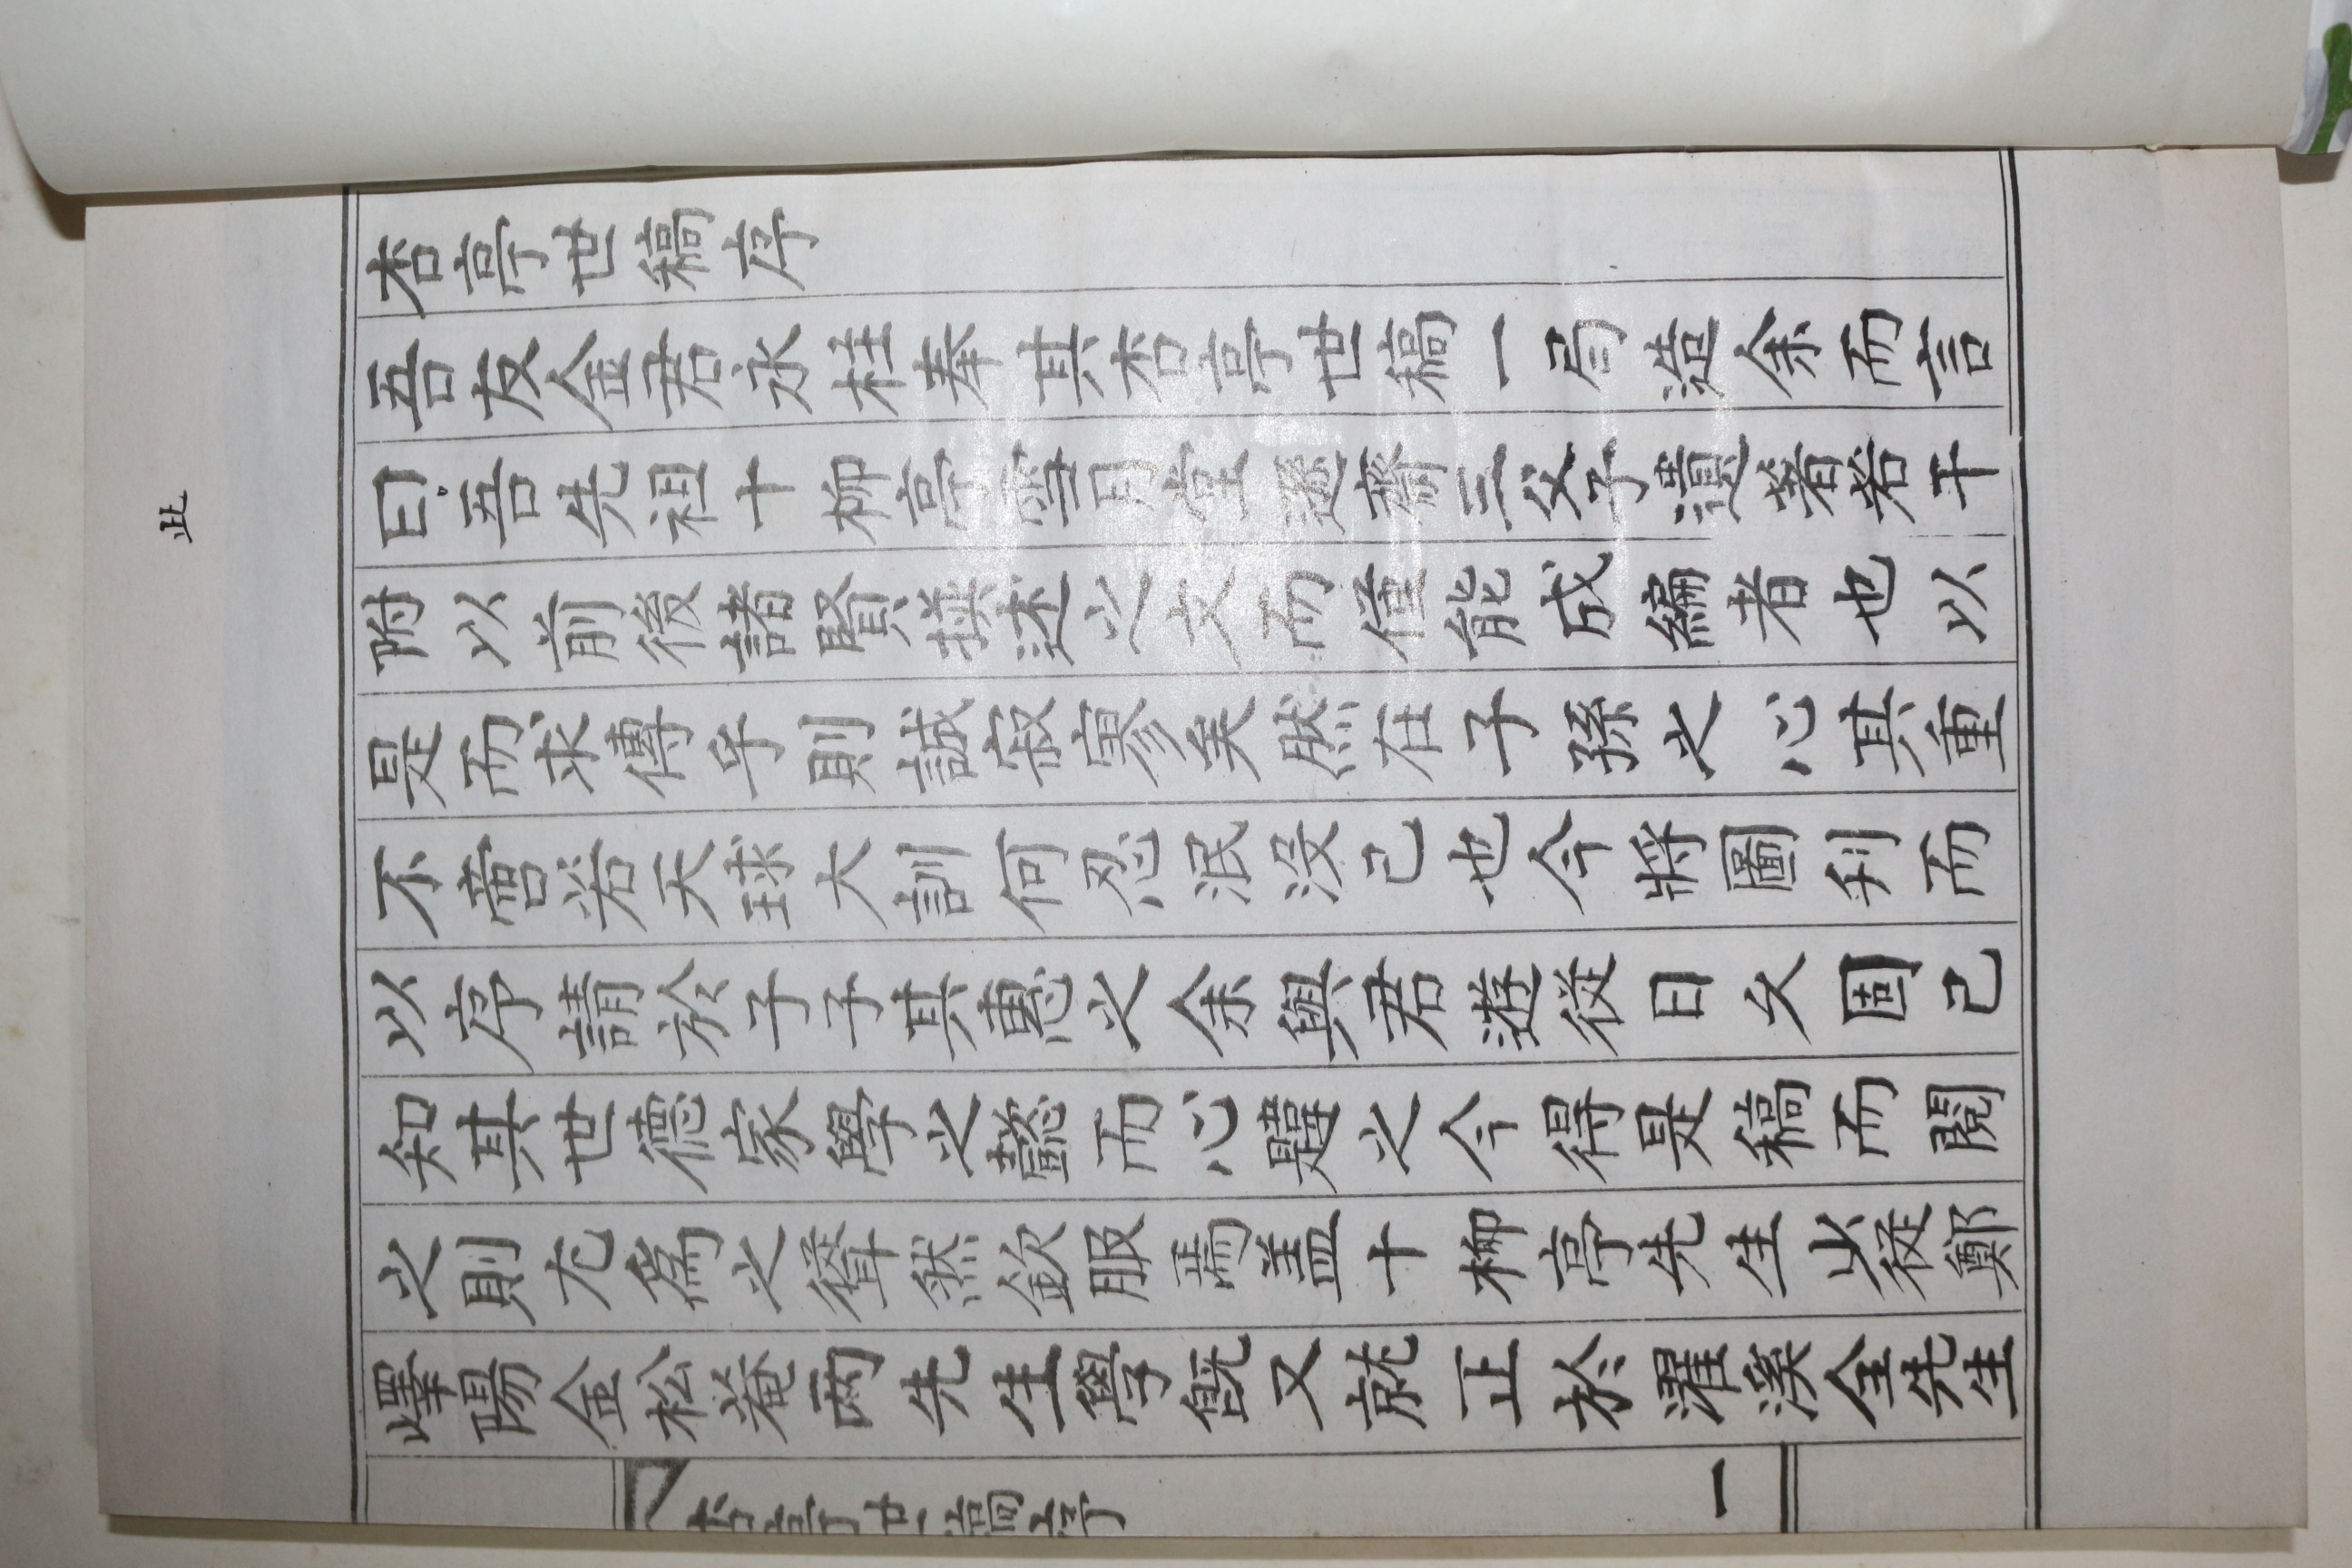 此
杏亭世稿序
吾友金君永柱奉其杏亭世稿一局造余而言
曰吾先祖十柳亭雪月堂遯齋三父子遺著若干
附以前後諸賢撰述之文而僅能成編者也以
是而求傳乎則誠寂寥矣然在子孫之心其重
不啻若天球大訓何忍泯没已也今將圖刋而
以序請於子子其惠之余與君遊從日久固已
知其世德家學之懿而心韙之今得是稿而閱
之則尤爲之聳然欽服焉盖十柳亭先生少從鄭
嶧陽金松菴两先生學旣又就正於濯溪全先生
杏亭世稿序
一